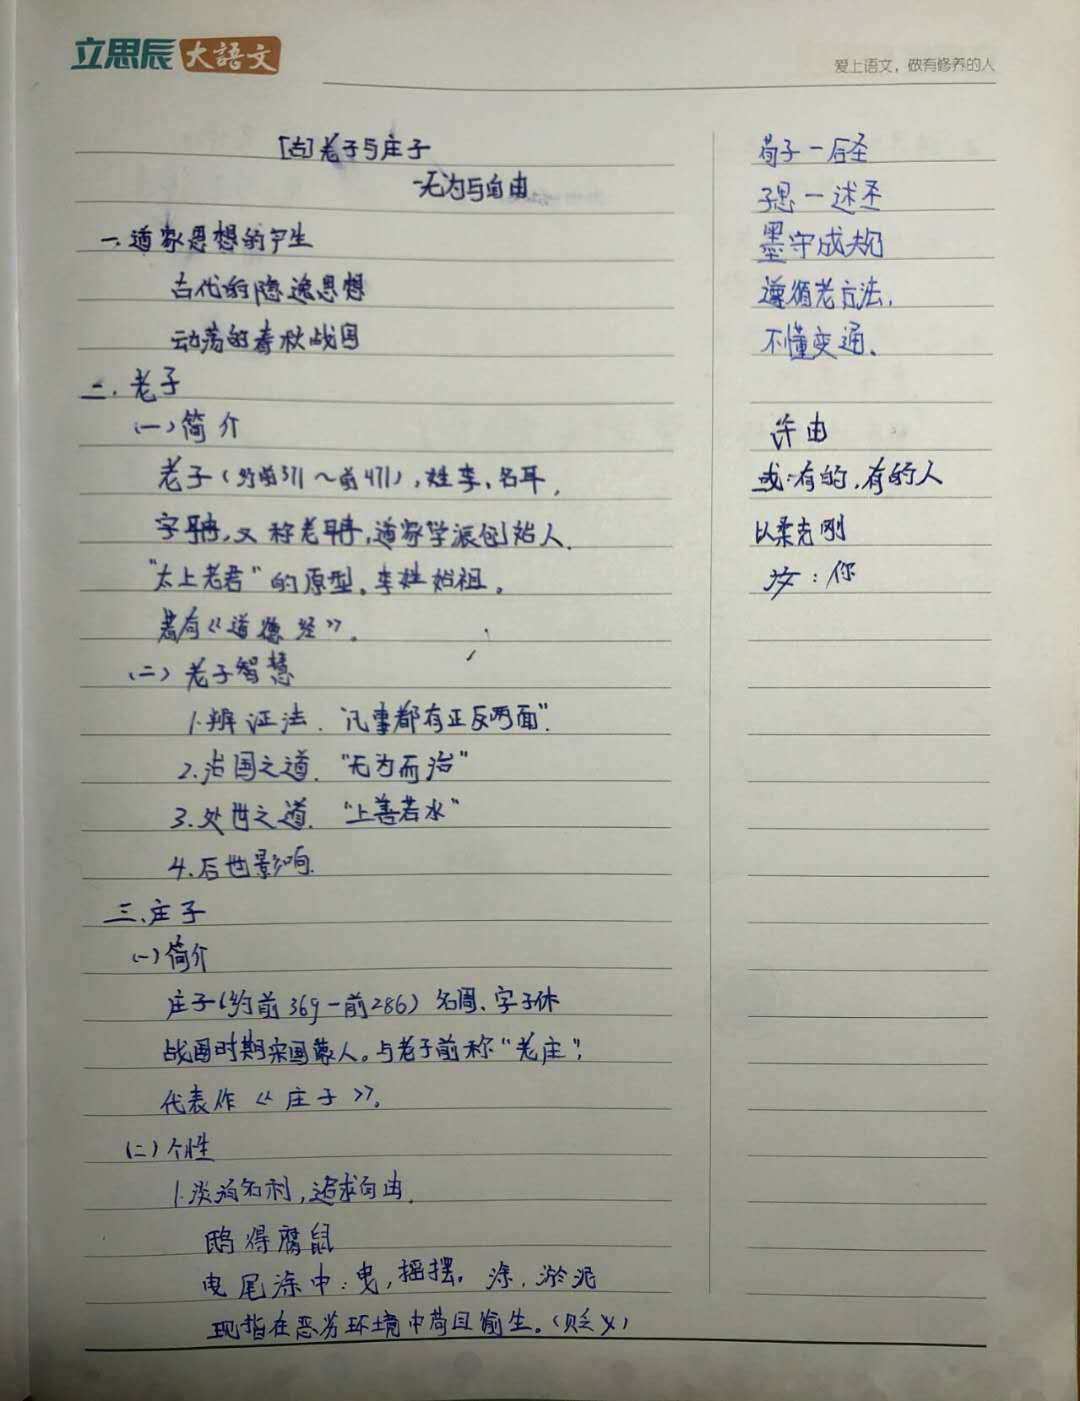 立思辰大語文
爱上语文，做有修养的人
[古]老子与庄子
—无为与自由
一.道家思想的产生
古代的隐逸思想
动荡的春秋战国
二.老子
(一)简介
老子(约前571～前471),姓李、名耳,
字聃,又称老聃,道家学派创始人.
"太上老君"的原型。李姓始祖。
著有《道德经》。
(二)老子智慧
1.辨证法."凡事都有正反两面".
2.治国之道."无为而治"
3.处世之道."上善若水"
4.后世影响.
三.庄子
(一)简介
庄子(约前369-前286)名周、字子休
战国时期宋国蒙人。与老子前称"老庄",
代表作《庄子》。
(二)个性
1.淡泊名利,追求自由.
鸱得腐鼠
曳尾涂中:曳,摇摆。涂,淤泥
现指在恶劣环境中苟且偷生。(贬义)
荀子-后圣
子思-述圣
墨守成规
遵循老方法,
不懂变通.
许由
或:有的,有的人
以柔克刚
汝:你